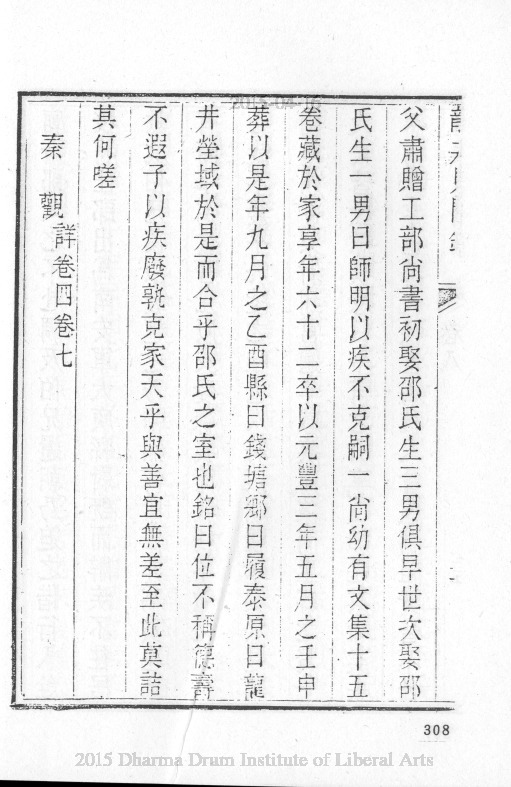 父肅贈工部尙書初娶邵氏生三男俱早世次娶邵
氏生一男曰師明以疾不克嗣一尙幼有文集十五
卷藏於家享年六十二卒以元豐三年五月之壬申
葬以是年九月之乙酉縣曰錢塘鄉曰履泰原曰龍
井塋域於是而合乎邵氏之室也銘曰位不稱德壽
不遐子以疾廢孰克家天乎與善宜無差至此莫詰
其何嗟
秦觀詳卷四卷七
308
2015 Dharma Drum Institute of Liberal Arts